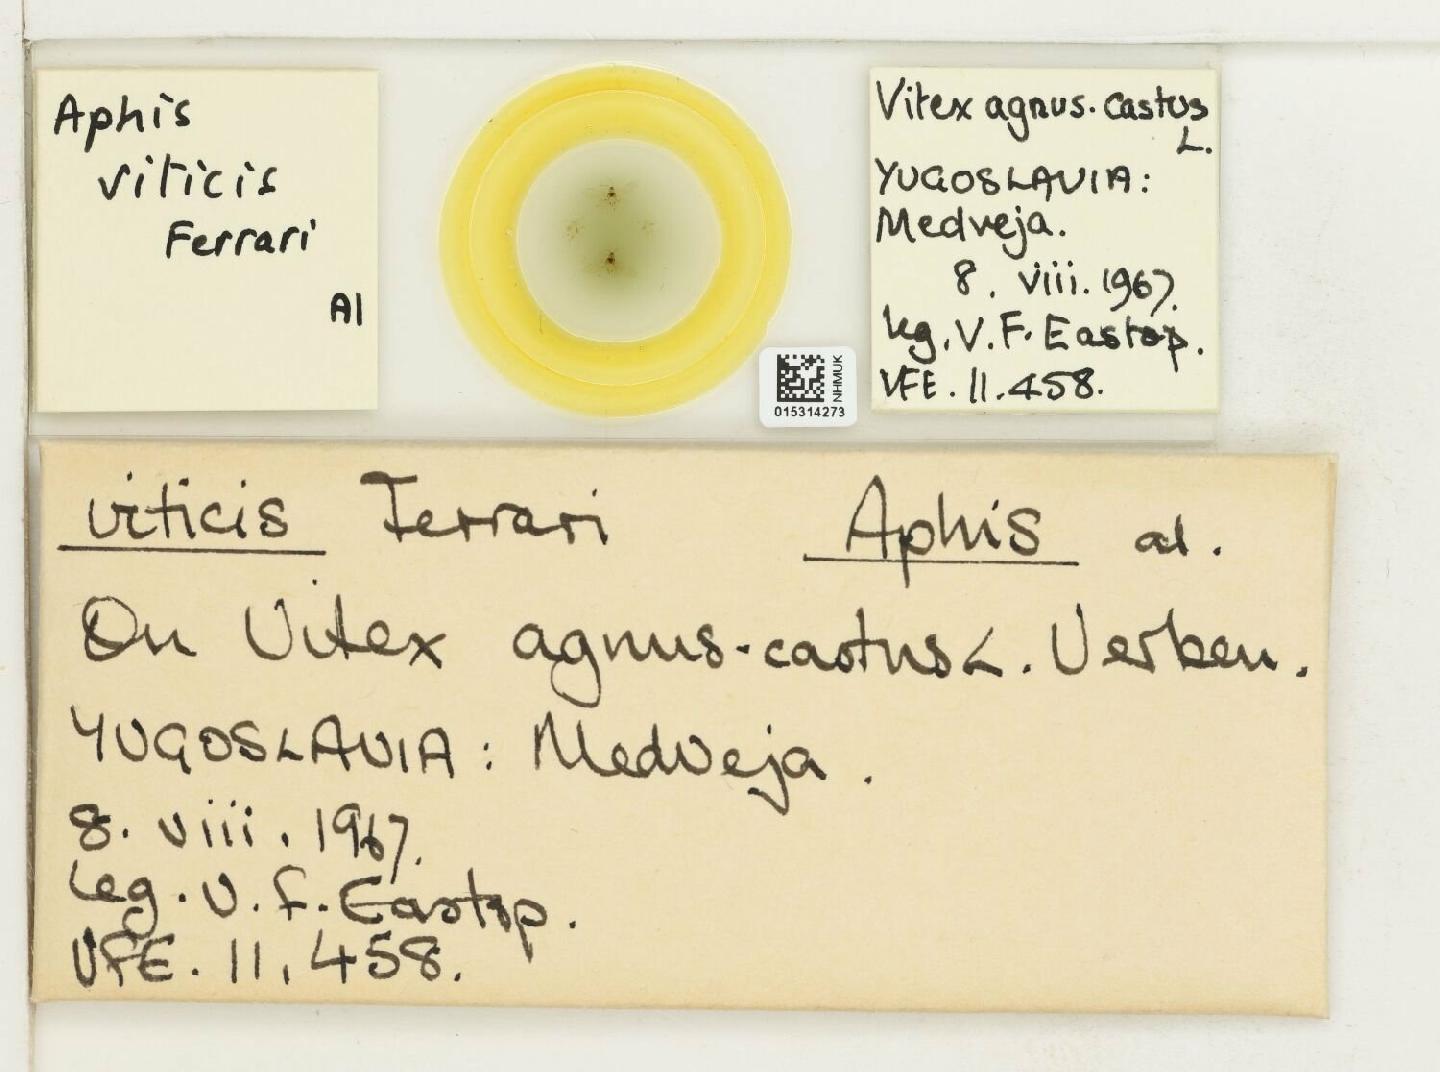 Aphis
viticis
Ferrari
Al
Vitex agnus-castus
L.
YUGOSLAVIA:
Medveja.
8. viii. 1967.
leg. V. F. Eastop.
VFE. 11.458.
NHMUK
015314273
viticis Ferrari Aphis al.
On Vitex agnus-castus L. Verben.
YUGOSLAVIA: Medveja.
8. viii. 1967.
Leg. V. F. Eastop.
VFE. 11.458.